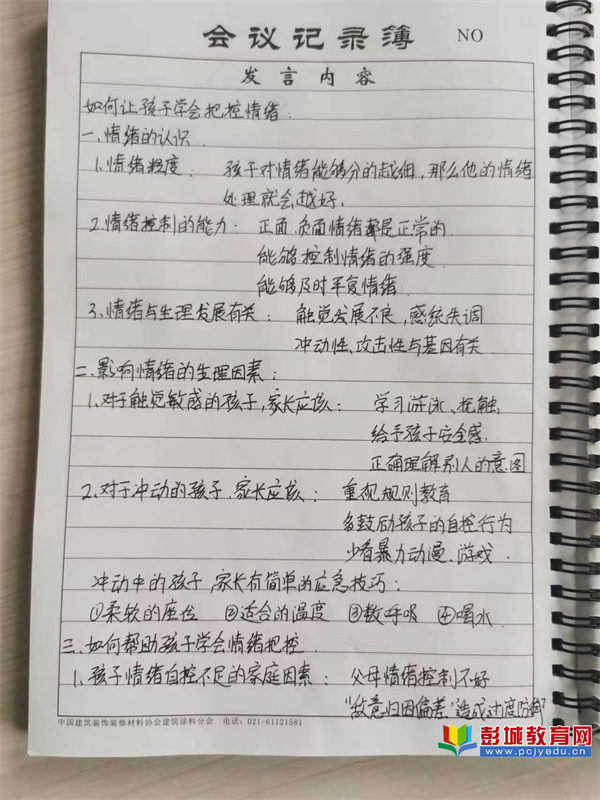 会议记录簿 NO
发言内容
如何让孩子学会把控情绪.
一.情绪的认识.
1.情绪粒度： 孩子对情绪能够分的越细，那么他的情绪
处理就会越好.
2.情绪控制的能力： 正面.负面情绪都是正常的.
能够控制情绪的强度.
能够及时平复情绪.
3.情绪与生理发展有关： 触觉发展不良，感统失调
冲动性、攻击性与基因有关.
二.影响情绪的生理因素：
1.对于触觉敏感的孩子，家长应该： 学习游泳、抚触.
给予孩子安全感.
正确理解别人的意图
2.对于冲动的孩子，家长应该： 重视规则教育
多鼓励孩子的自控行为
少看暴力动漫.游戏.
冲动中的孩子，家长有简单的应急技巧：
①柔软的座位 ②适合的温度 ③数呼吸 ④喝水.
三.如何帮助孩子学会情绪把控.
1.孩子情绪自控不足的家庭因素： 父母情绪控制不好
"故意归因偏差"造成过度防御
中国建筑装饰装修材料协会建筑涂料分会 电话：021-61121581
彭城教育网
www.pcjyedu.cn